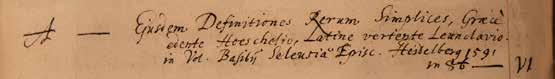 A — Ejusdem Definitiones Rerum Simplices, Græcè
edente Hoeschelio, Latine vertente Leunclavio.
in Vol. Basilij Seleuciæ Episc. Heidelberg 1591
in 8º — VI